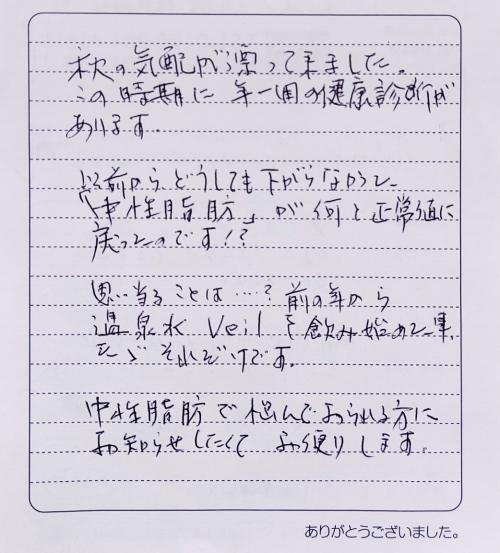 秋の気配が漂って来ました。
この時期に 年一回の健康診断が
あります。
以前からどうしても下がらなかった
「中性脂肪」が何と正常値に
戻ったのです!?
思い当ることは…? 前の年から
温泉水 Veil を飲み始めた事、
ただ それだけです。
中性脂肪で悩んでおられる方に
お知らせしたくて お便りします。
ありがとうございました。